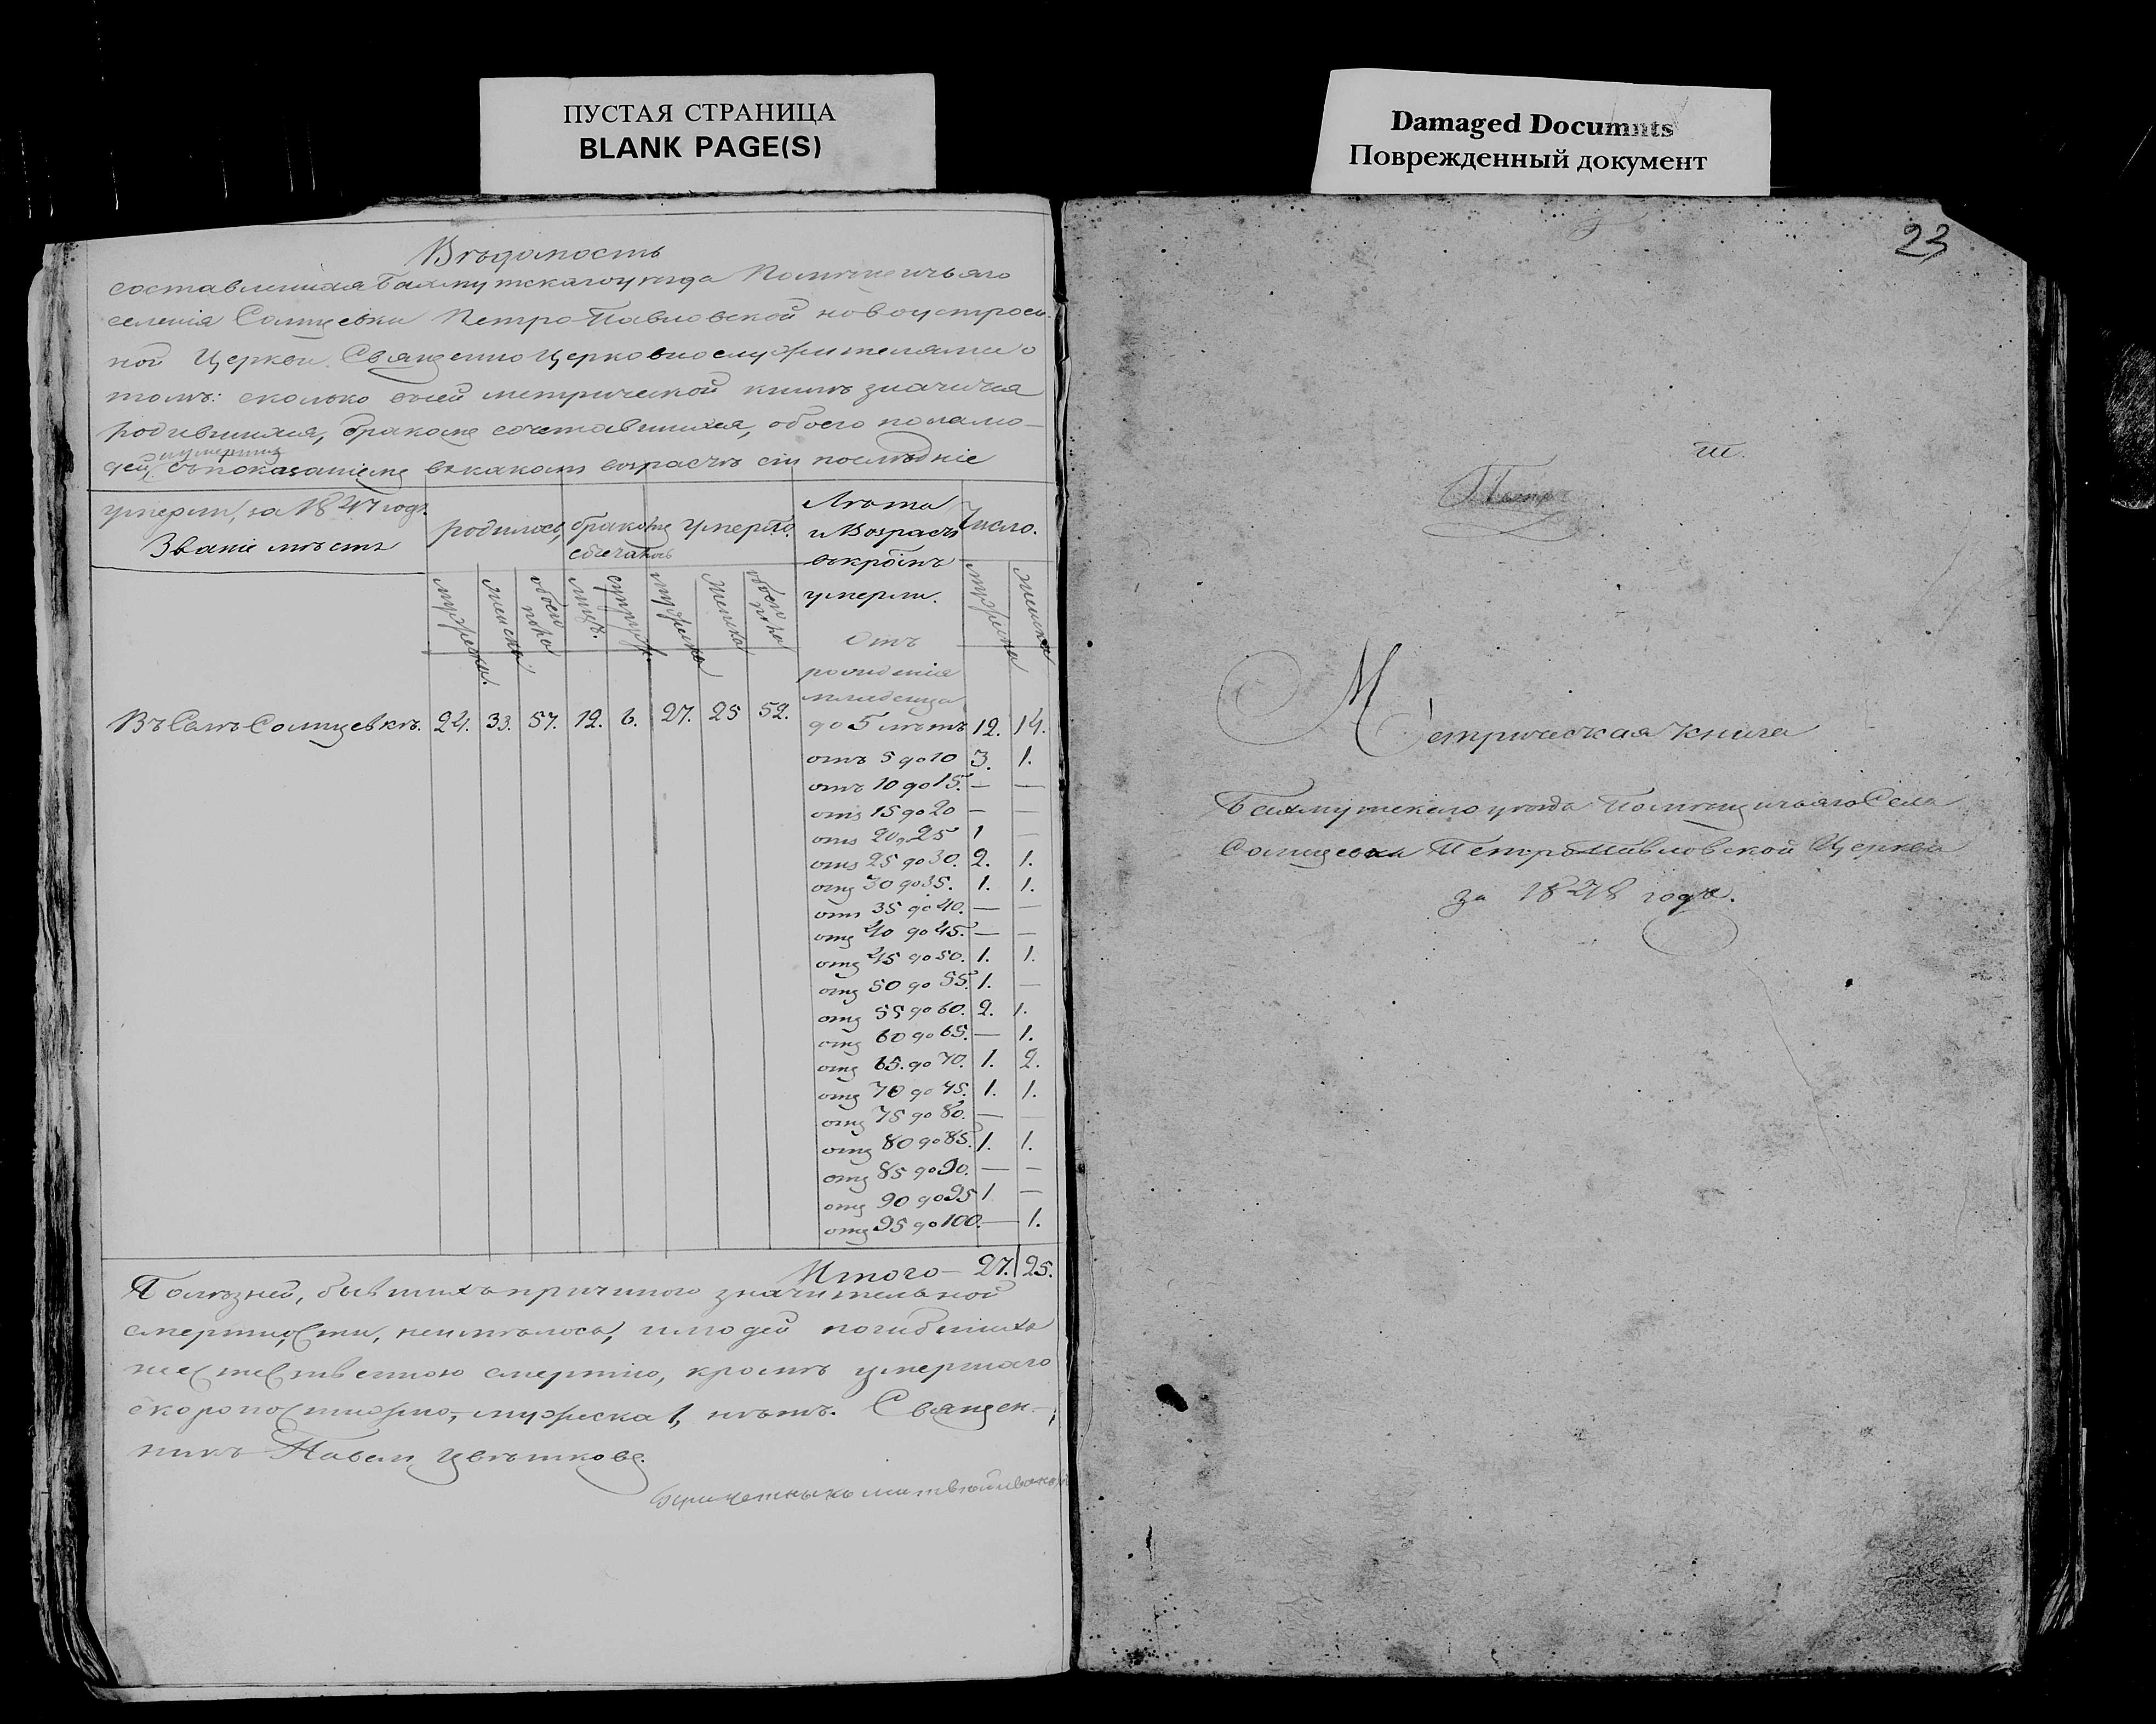 ПУСТАЯ СТРАНИЦА
BLANK PAGE(S)
Damaged Documnts
Поврежденный документ
23
Вѣдомость
составленная Бахмутскаго уѣзда Помѣщичьяго
селенія Солнцевки Петро-Павловской новоустроен-
ной Церкви Священно Церковнослужителями о
томъ: сколько въсей метрической книгѣ значится
родившихся, бракомъ сочетавшихся, обоего пола лю-
дей, и умершихъ съпоказаніемъ въкакомъ возрастѣ сіи послѣдніе
умерли, за 1847 годъ.
Званіе мѣстъ
родилось, бракомъ сочеталось умерло. Лѣта и Возрастъ вкоемъ умерли. Число.
мужеска. женска обоего пола лицъ. супруж. мужеска женска обоего пола мужеска женска
Отъ
рожденія
младенца
ВъСелѣ Солнцевкѣ. 24. 33. 57. 12. 6. 27. 25 52. до 5 лѣтъ 12. 14.
отъ 5 до 10 3. 1.
отъ 10 до 15. — —
отъ 15 до 20 — —
отъ 20 до 25 1 —
отъ 25 до 30. 2. 1.
отъ 30 до 35. 1. 1.
отъ 35 до 40. — —
отъ 40 до 45. — —
отъ 45 до 50. 1. 1.
отъ 50 до 55. 1. —
отъ 55 до 60. 2. 1.
отъ 60 до 65. — 1.
отъ 65. до 70. 1. 2.
отъ 70 до 75. 1. 1.
отъ 75 до 80. — —
отъ 80 до 85. 1. 1.
отъ 85 до 90. — —
отъ 90 до 95 1 —
отъ 95 до 100. — 1.
Итого — 27. 25.
Болѣзней, бывшихъ причиною значительной
смертности, неимѣлось, илюдей погибшихъ
неестественною смертію, кромѣ умершаго
скоропостижно, мужеска 1, нѣтъ. Священ-
никъ Павелъ Цвѣтковъ.
Метрическая книга
Бахмутскаго уѣзда Помѣщичьяго Села
Солнцевки Петропавловской Церкви
за 1848 годъ.